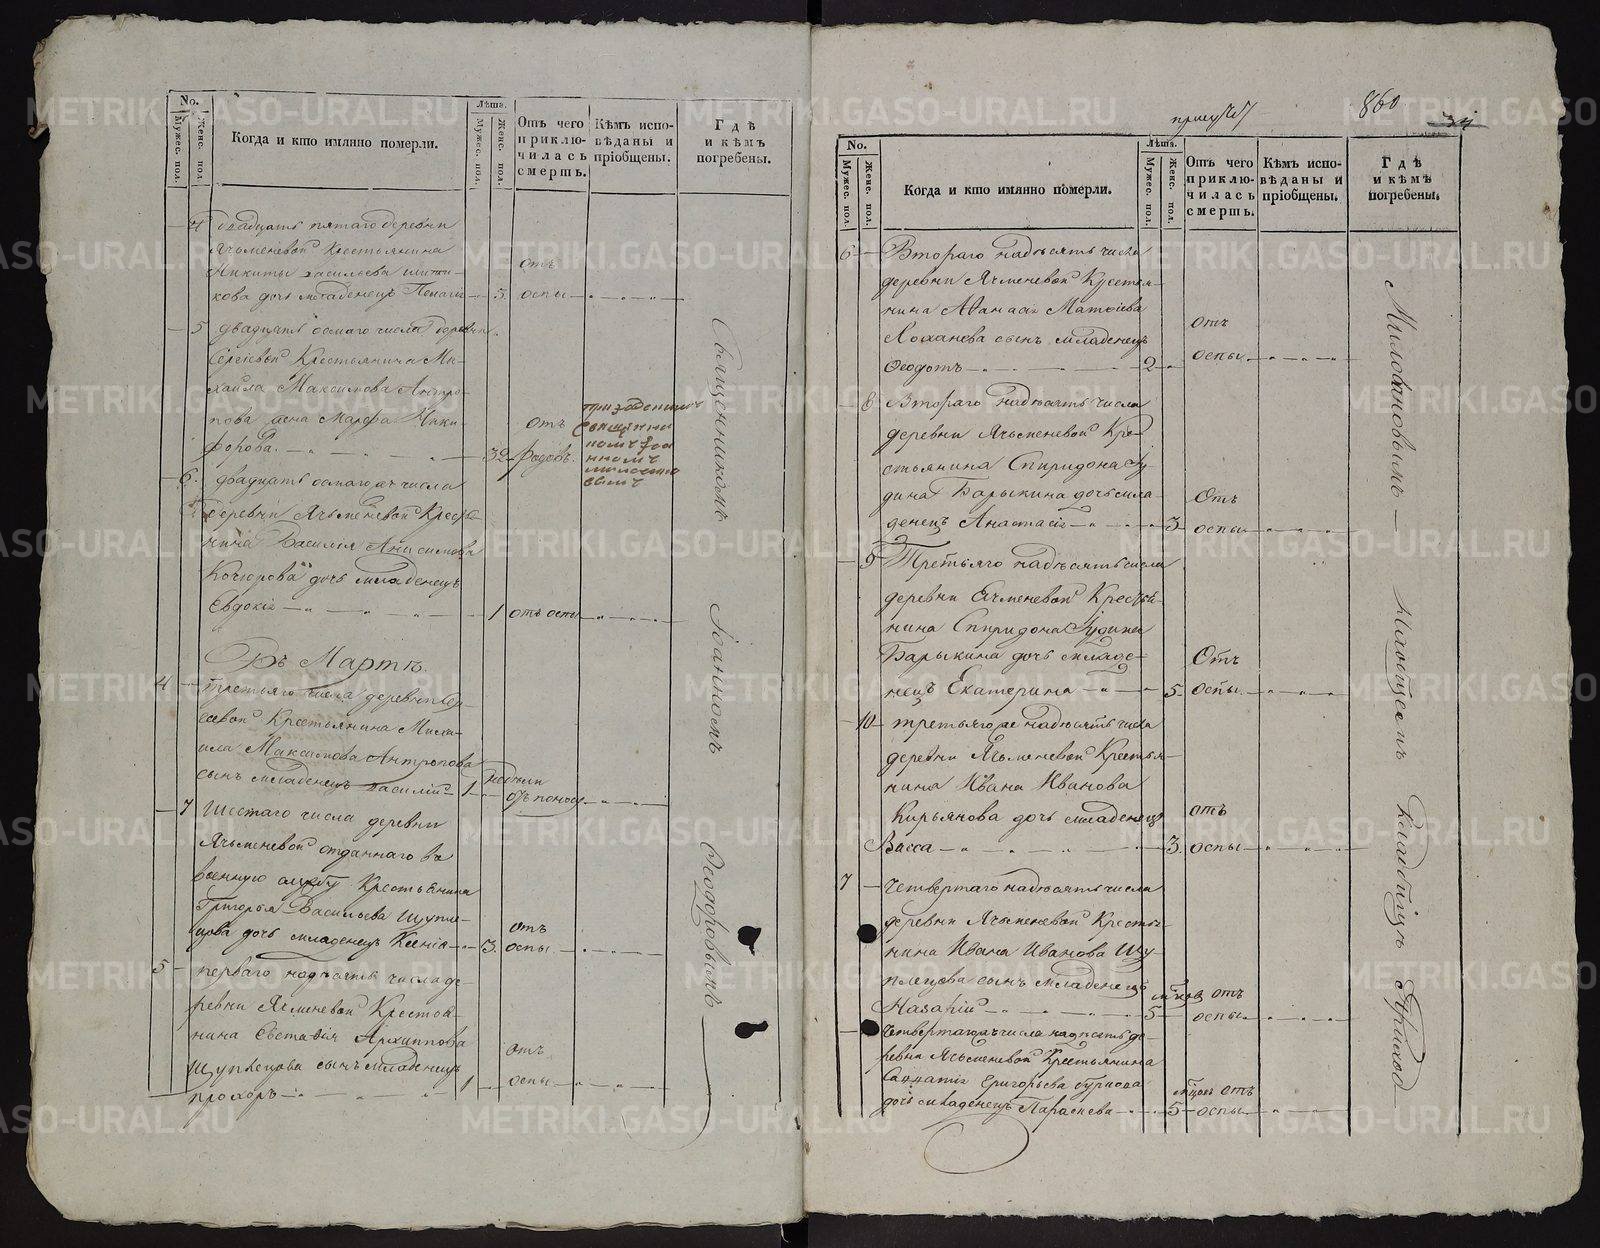 No.
Мужес. пол.
Женс. пол.
Когда и кто имянно померли.
Лѣта.
Мужес. пол.
Женс. пол.
Отъ чего
приклю-
чилась
смерть.
Кѣмъ испо-
вѣданы и
пріобщены.
Гдѣ
и кѣмъ
погребены.
4 двадцать пятаго деревни
Ячьменевой Крестьянина
Никиты Васильева
кова дочь младенецъ Пелагія 3 отъ оспы
5 двадцать осмаго числа деревни
Крестьянина Ми-
хайла Максимова Антро-
пова жена Марфа Ники-
форова 32 отъ родовъ
6. двадцать осмаго числа
деревни Ячьменевой Крестья-
нина Василія Анисимова
Кочюрова дочь младенецъ
Евдокія 1 отъ оспы
Въ Мартѣ.
4 третьяго числа деревни
Крестьянина Миха-
ила Максимова Антропова
сынъ младенецъ Василій 1 недѣли отъ поносу
7 Шестаго числа деревни
Ячьменевой отданнаго въ
военную службу Крестьянина
Григорья Васильева Щупле-
цова дочь младенецъ Ксенія 3 отъ оспы
5 перваго надъсять числа де-
ревни Ячменевой Крестья-
нина Архиппова
Щуплецова сынъ младенецъ
Прохоръ 1 отъ оспы
Священникомъ Іоанномъ Ѳеодоровымъ
860
No.
Мужес. пол.
Женс. пол.
Когда и кто имянно померли.
Лѣта.
Мужес. пол.
Женс. пол.
Отъ чего
приклю-
чилась
смерть.
Кѣмъ испо-
вѣданы и
пріобщены.
Гдѣ
и кѣмъ
погребены.
6 Втораго надъсять числа
деревни Ячменевой Крестья-
нина Аѳанасія Матѳіева
Лоханева сынъ младенецъ
Ѳеодотъ 2 отъ оспы
8 Втораго надъсять числа
деревни Ячьменевой Кре-
стьянина Спиридона Іу-
дина Барыкина дочь мла-
денецъ Анастасія 3 Отъ оспы
9 Третьяго надъсять числа
деревни Ячменевой Крестья-
нина Спиридона Іудина
Барыкина дочь младе-
нецъ Екатерина 5 Отъ оспы
10 третьяго надъсять числа
деревни Ячьменевой Крестья-
нина Ивана Иванова
Кирьянова дочь младенецъ
Васса 3 отъ оспы
7 Четвертаго надъсять числа
деревни Ячьменевой Крестья-
нина Ивана Иванова Щу-
плецова сынъ младенецъ
Назарій 5 отъ оспы
Четвертаго числа надъсять де-
ревни Ячьменевой Крестьянина
Григорьева
дочь младенецъ Параскева 5 отъ оспы
Миловановымъ на общемъ кладбищѣ Приход
METRIKI.GASO-URAL.RU